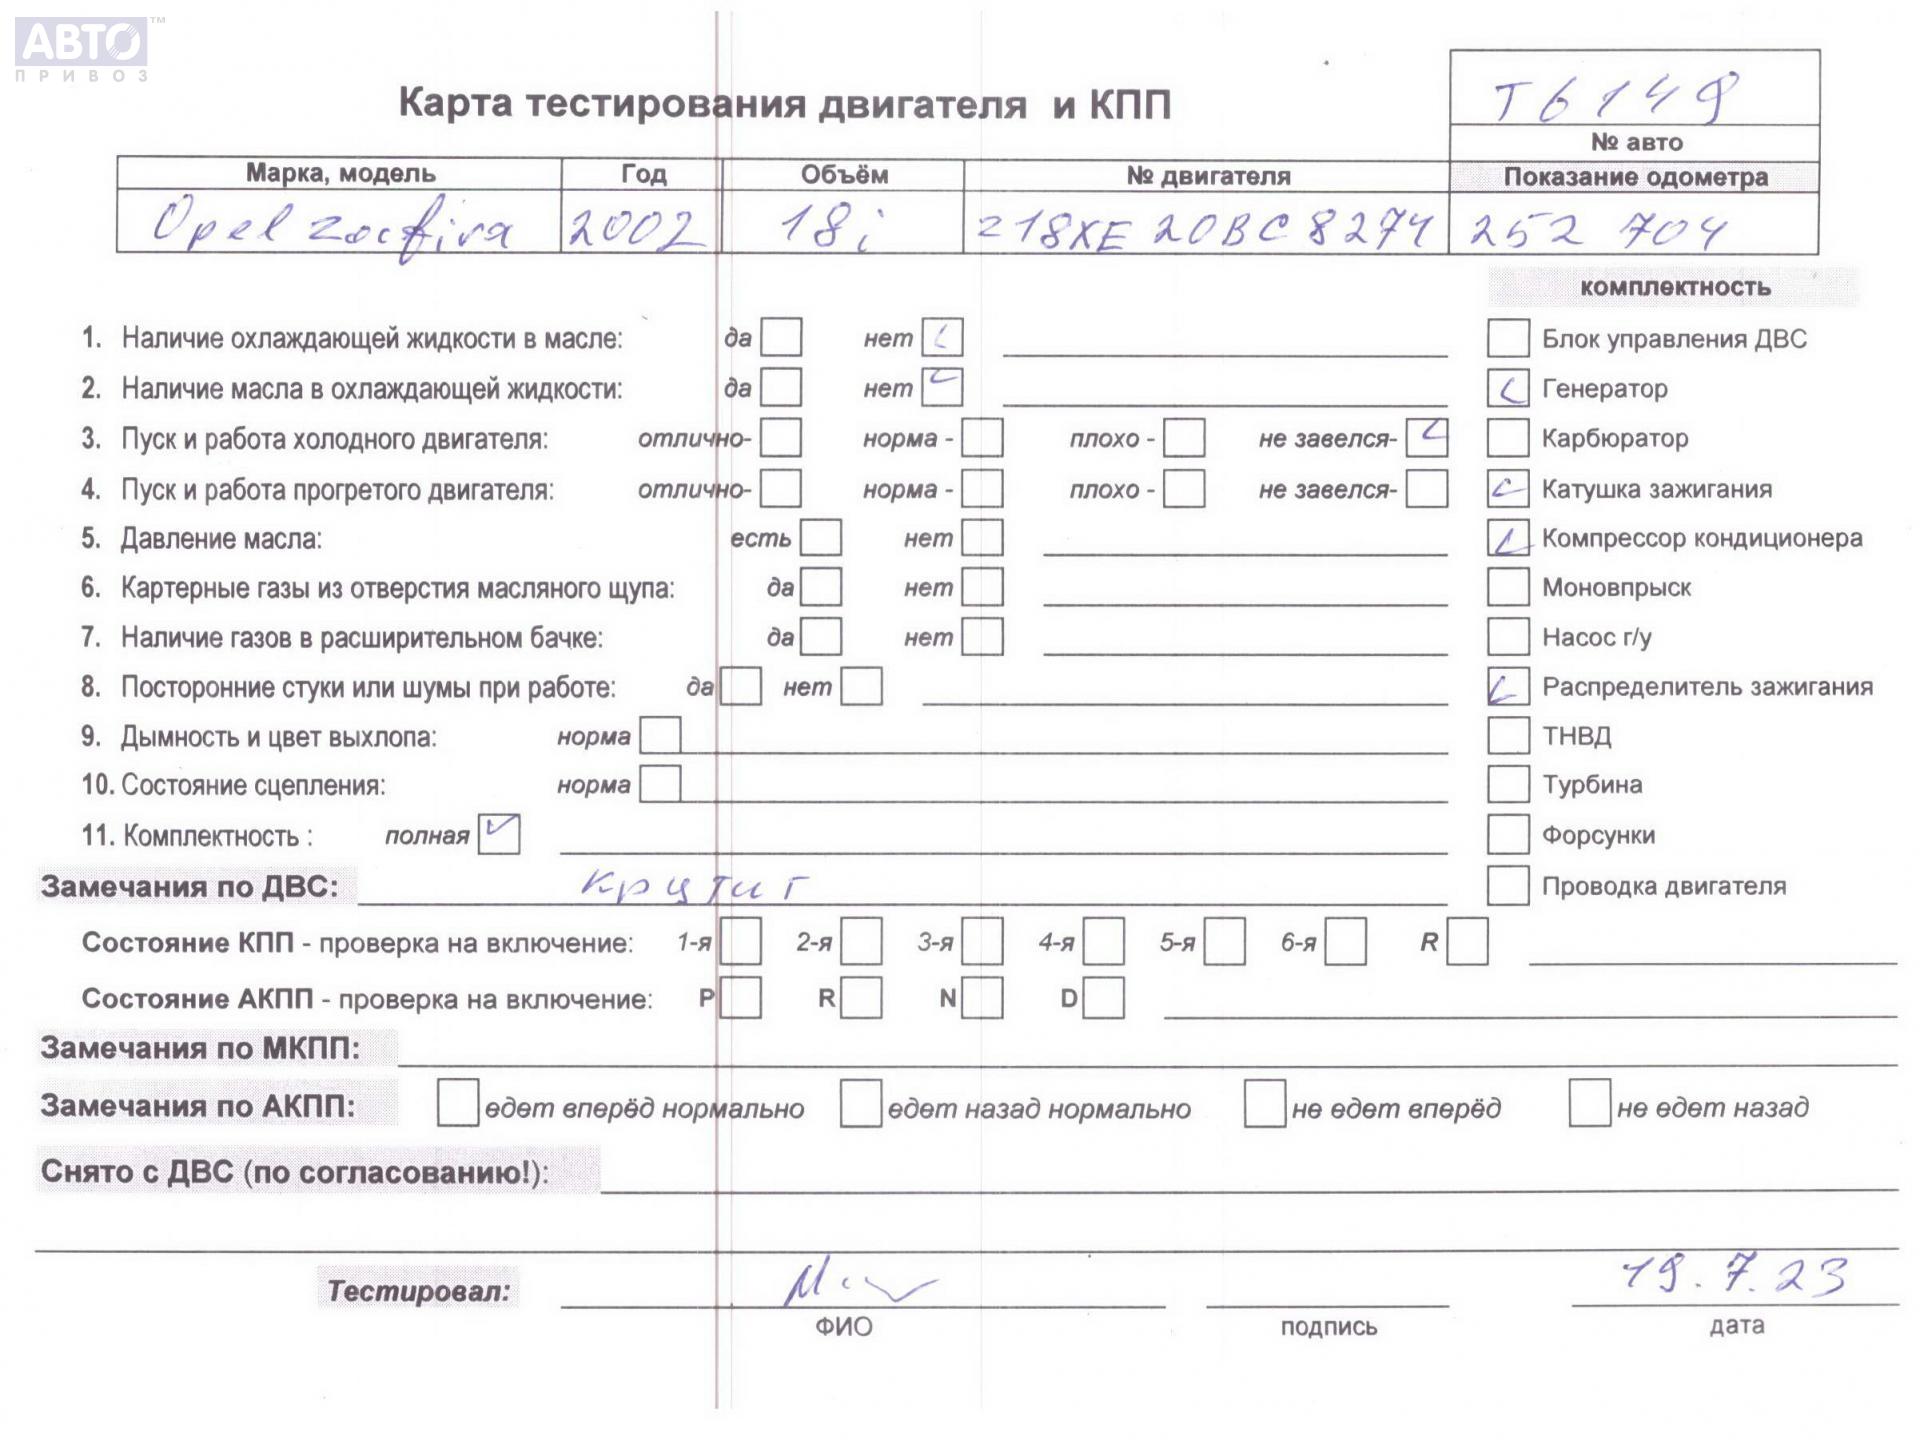 АВТО™
ПРИВОЗ
Карта тестирования двигателя и КПП
Т6149
№ авто
Марка, модель Год Объём № двигателя Показание одометра
Opel Zacfira 2002 18i z18XE 20BC8274 252 704
комплектность
1. Наличие охлаждающей жидкости в масле: да нет Блок управления ДВС
2. Наличие масла в охлаждающей жидкости: да нет Генератор
3. Пуск и работа холодного двигателя: отлично- норма - плохо - не завелся- Карбюратор
4. Пуск и работа прогретого двигателя: отлично- норма - плохо - не завелся- Катушка зажигания
5. Давление масла: есть нет Компрессор кондиционера
6. Картерные газы из отверстия масляного щупа: да нет Моновпрыск
7. Наличие газов в расширительном бачке: да нет Насос г/у
8. Посторонние стуки или шумы при работе: да нет Распределитель зажигания
9. Дымность и цвет выхлопа: норма ТНВД
10. Состояние сцепления: норма Турбина
11. Комплектность : полная Форсунки
Замечания по ДВС: крутит Проводка двигателя
Состояние КПП - проверка на включение: 1-я 2-я 3-я 4-я 5-я 6-я R
Состояние АКПП - проверка на включение: P R N D
Замечания по МКПП:
Замечания по АКПП: едет вперёд нормально едет назад нормально не едет вперёд не едет назад
Снято с ДВС (по согласованию!):
Тестировал: 19.7.23
ФИО подпись дата